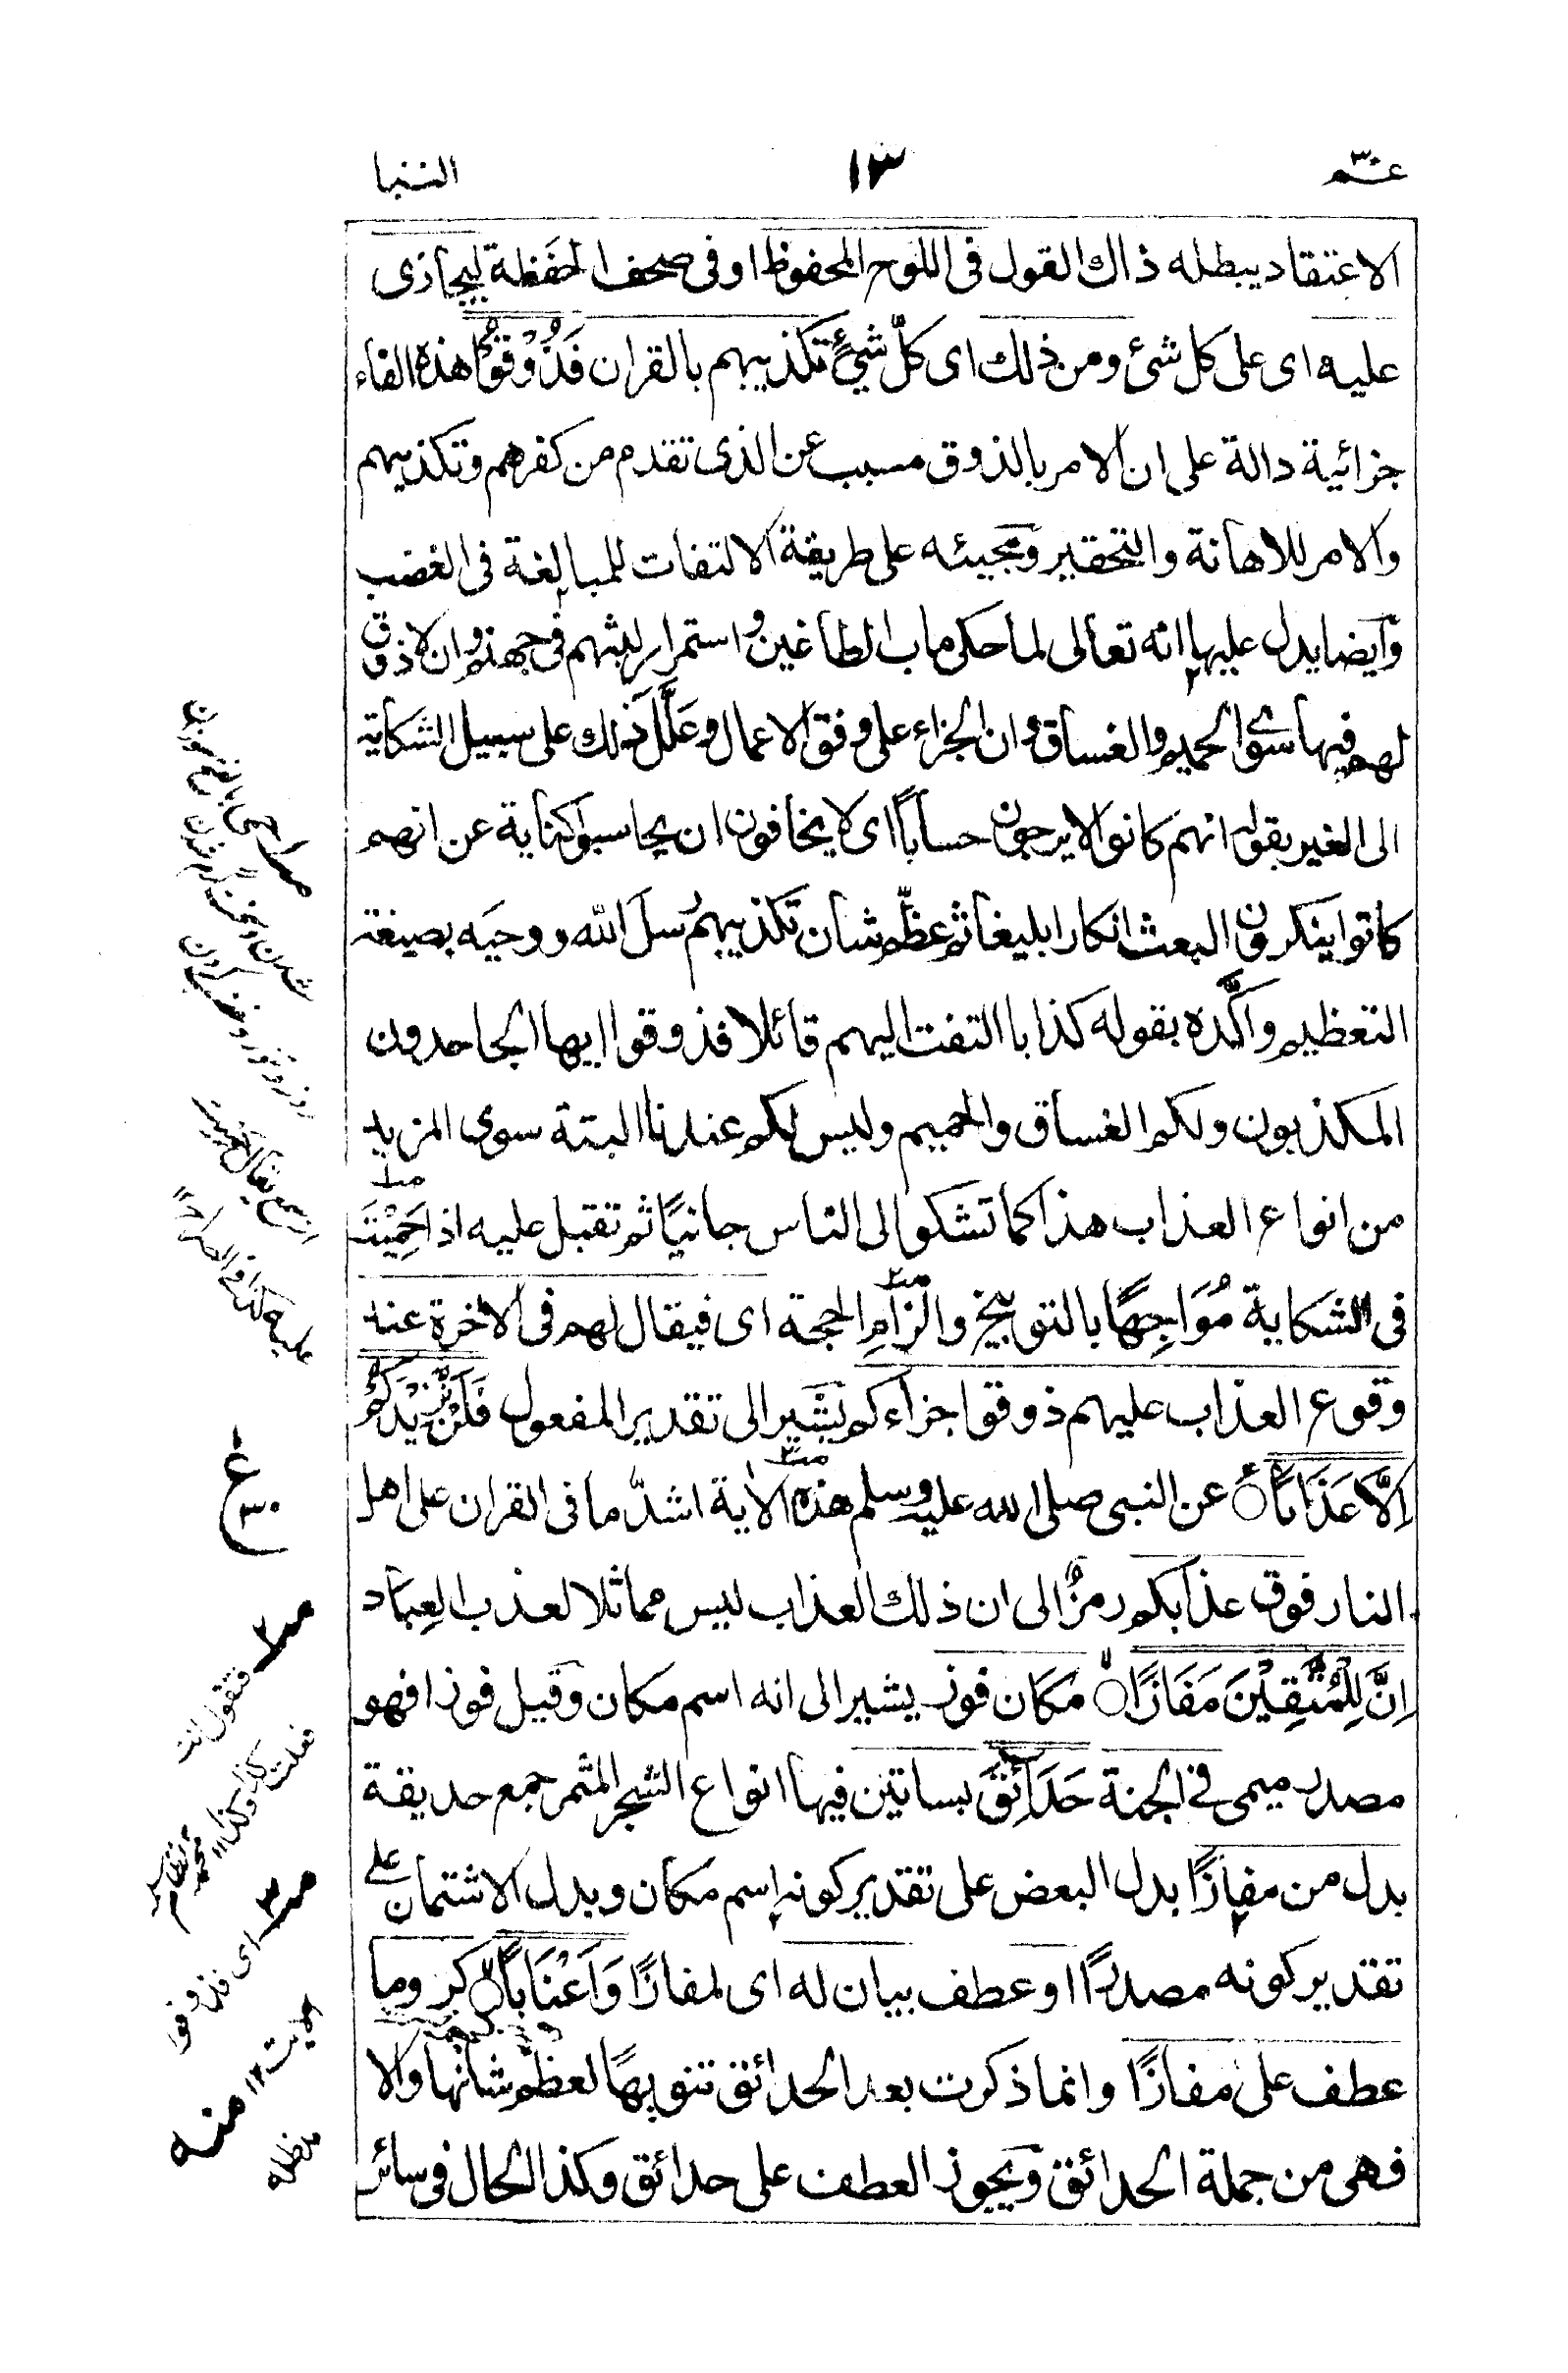 عـم ٣٠
١٣
النبا
الاعتقاد يبطله ذاك القول فى اللوح المحفوظ او فى صحف الحفظة ليجازى
عليه اى على كل شئ ومن ذلك اى كلّ شئٍ تكذيبهم بالقران فَذُوْقُوْا هذه الفاء
جزائية دالة على ان الامر بالذوق مسبب عن الذى تقدم من كفرهم وتكذيبهم
والامر للاهانة والتحقير ومجيئه على طريقة الالتفات للمبالغة فى الغضب
وايضا يدل عليها انه تعالى لما حكى ماب الطاغين واستمرار لبثهم فى جهنم وان لا ذوق
لهم فيها سوى الحميم والغساق وان الجزاء على وفق الاعمال وعَلَّلَ ذلك على سبيل الشكاية
الى الغير بقوله انهم كانوا لا يرجون حساباً اى لا يخافون ان يحاسبوا كناية عن انهم
كانوا ينكرون البعث انكارا بليغا ثم عظّم شان تكذيبهم رُسل الله ووحيَه بصيغة
التعظيم واكَّده بقوله كذابا التفت اليهم قائلا فذوقوا ايها الجاحدون
المكذبون ولكم الغساق والحميم وليس لكم عندنا البتة سوى المزيد
من انواع العذاب هذا كما تشكوا الى الناس جانيًا ثم تقبل عليه اذا حَمِيْتَ
فى الشكاية مُوَاجِهًا بالتوبيخ والزامِ الحجة اى فيقال لهم فى الاخرة عند
وقوع العذاب عليهم ذوقوا جزاءكم يشير الى تقدير المفعول فَلَنْ نَّزِيْدَكُمْ
اِلَّا عَذَابًا عن النبى صلى الله عليه وسلم هذه الاية اشدّ ما فى القران على اهل
النار فوق عذابكم رمزٌ الى ان ذلك العذاب ليس مماثلا لعذب العِبَاد
اِنَّ لِلْمُتَّقِيْنَ مَفَازًا مكان فوز يشير الى انه اسم مكان وقيل فوزا فهو
مصدر ميمى فى الجنة حَدَائِقَ بساتين فيها انواع الشجر المثمر جمع حديقة
بدل من مفازًا بدل البعض على تقدير كونه اسم مكان وبدل الاشتمال على
تقدير كونه مصدرًا او عطف بيان له اى لمفازًا وَاَعْنَابًا كروما
عطف على مفازًا وانما ذكرت بعد الحدائق تنويهًا لعظم شانها والا
فهى من جملة الحدائق ويجوز العطف على حدائق وكذا الحال فى سائر
فتقول انت
فعلت كذا وكذا ١٢
اى فذوقوا
منه
مدظله